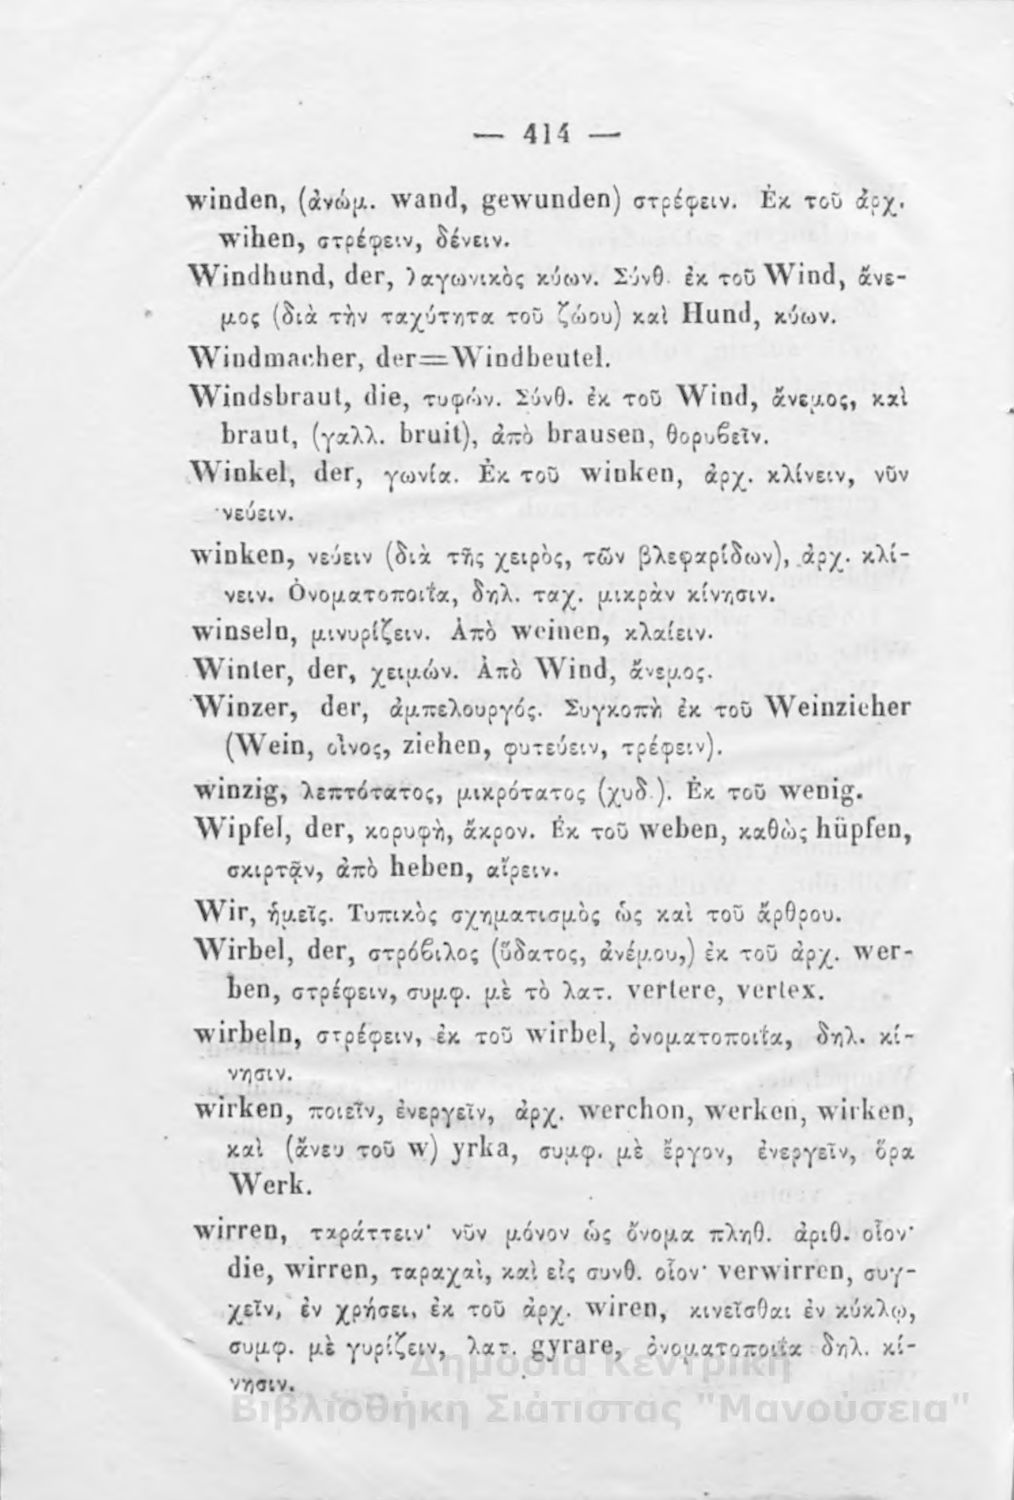 — 414 —
winden, (ἀνώμ. wand, gewunden) στρέφειν. Ἐκ τοῦ ἀρχ.
wihen, στρέφειν, δένειν.
Windhund, der, λαγωνικὸς κύων. Σύνθ. ἐκ τοῦ Wind, ἄνε-
μος (διὰ τὴν ταχύτητα τοῦ ζώου) καὶ Hund, κύων.
Windmacher, der=Windbeutel.
Windsbraut, die, τυφών. Σύνθ. ἐκ τοῦ Wind, ἄνεμος, καὶ
braut, (γαλλ. bruit), ἀπὸ brausen, θορυβεῖν.
Winkel, der, γωνία. Ἐκ τοῦ winken, ἀρχ. κλίνειν, νῦν
νεύειν.
winken, νεύειν (διὰ τῆς χειρὸς, τῶν βλεφαρίδων), ἀρχ. κλί-
νειν. Ὀνοματοποιΐα, δηλ. ταχ. μικρὰν κίνησιν.
winseln, μινυρίζειν. Ἀπὸ weinen, κλαίειν.
Winter, der, χειμών. Ἀπὸ Wind, ἄνεμος.
Winzer, der, ἀμπελουργός. Συγκοπὴ ἐκ τοῦ Weinzieher
(Wein, οἶνος, ziehen, φυτεύειν, τρέφειν).
winzig, λεπτότατος, μικρότατος (χυδ.). Ἐκ τοῦ wenig.
Wipfel, der, κορυφὴ, ἄκρον. Ἐκ τοῦ weben, καθὼς hüpfen,
σκιρτᾷν, ἀπὸ heben, αἴρειν.
Wir, ἡμεῖς. Τυπικὸς σχηματισμὸς ὡς καὶ τοῦ ἄρθρου.
Wirbel, der, στρόβιλος (ὕδατος, ἀνέμου,) ἐκ τοῦ ἀρχ. wer-
ben, στρέφειν, συμφ. μὲ τὸ λατ. vertere, vertex.
wirbeln, στρέφειν, ἐκ τοῦ wirbel, ὀνοματοποιΐα, δηλ. κί-
νησιν.
wirken, ποιεῖν, ἐνεργεῖν, ἀρχ. werchon, werken, wirken,
καὶ (ἄνευ τοῦ w) yrka, συμφ. μὲ ἔργον, ἐνεργεῖν, ὅρα
Werk.
wirren, ταράττειν· νῦν μόνον ὡς ὄνομα πληθ. ἀριθ. οἷον·
die, wirren, ταραχαὶ, καὶ εἰς συνθ. οἷον· verwirren, συγ-
χεῖν, ἐν χρήσει, ἐκ τοῦ ἀρχ. wiren, κινεῖσθαι ἐν κύκλῳ,
συμφ. μὲ γυρίζειν, λατ. gyrare, ὀνοματοποιΐα δηλ. κί-
νησιν.
Δημόσια Κεντρική
Βιβλιοθήκη Σιάτιστας "Μανούσεια"